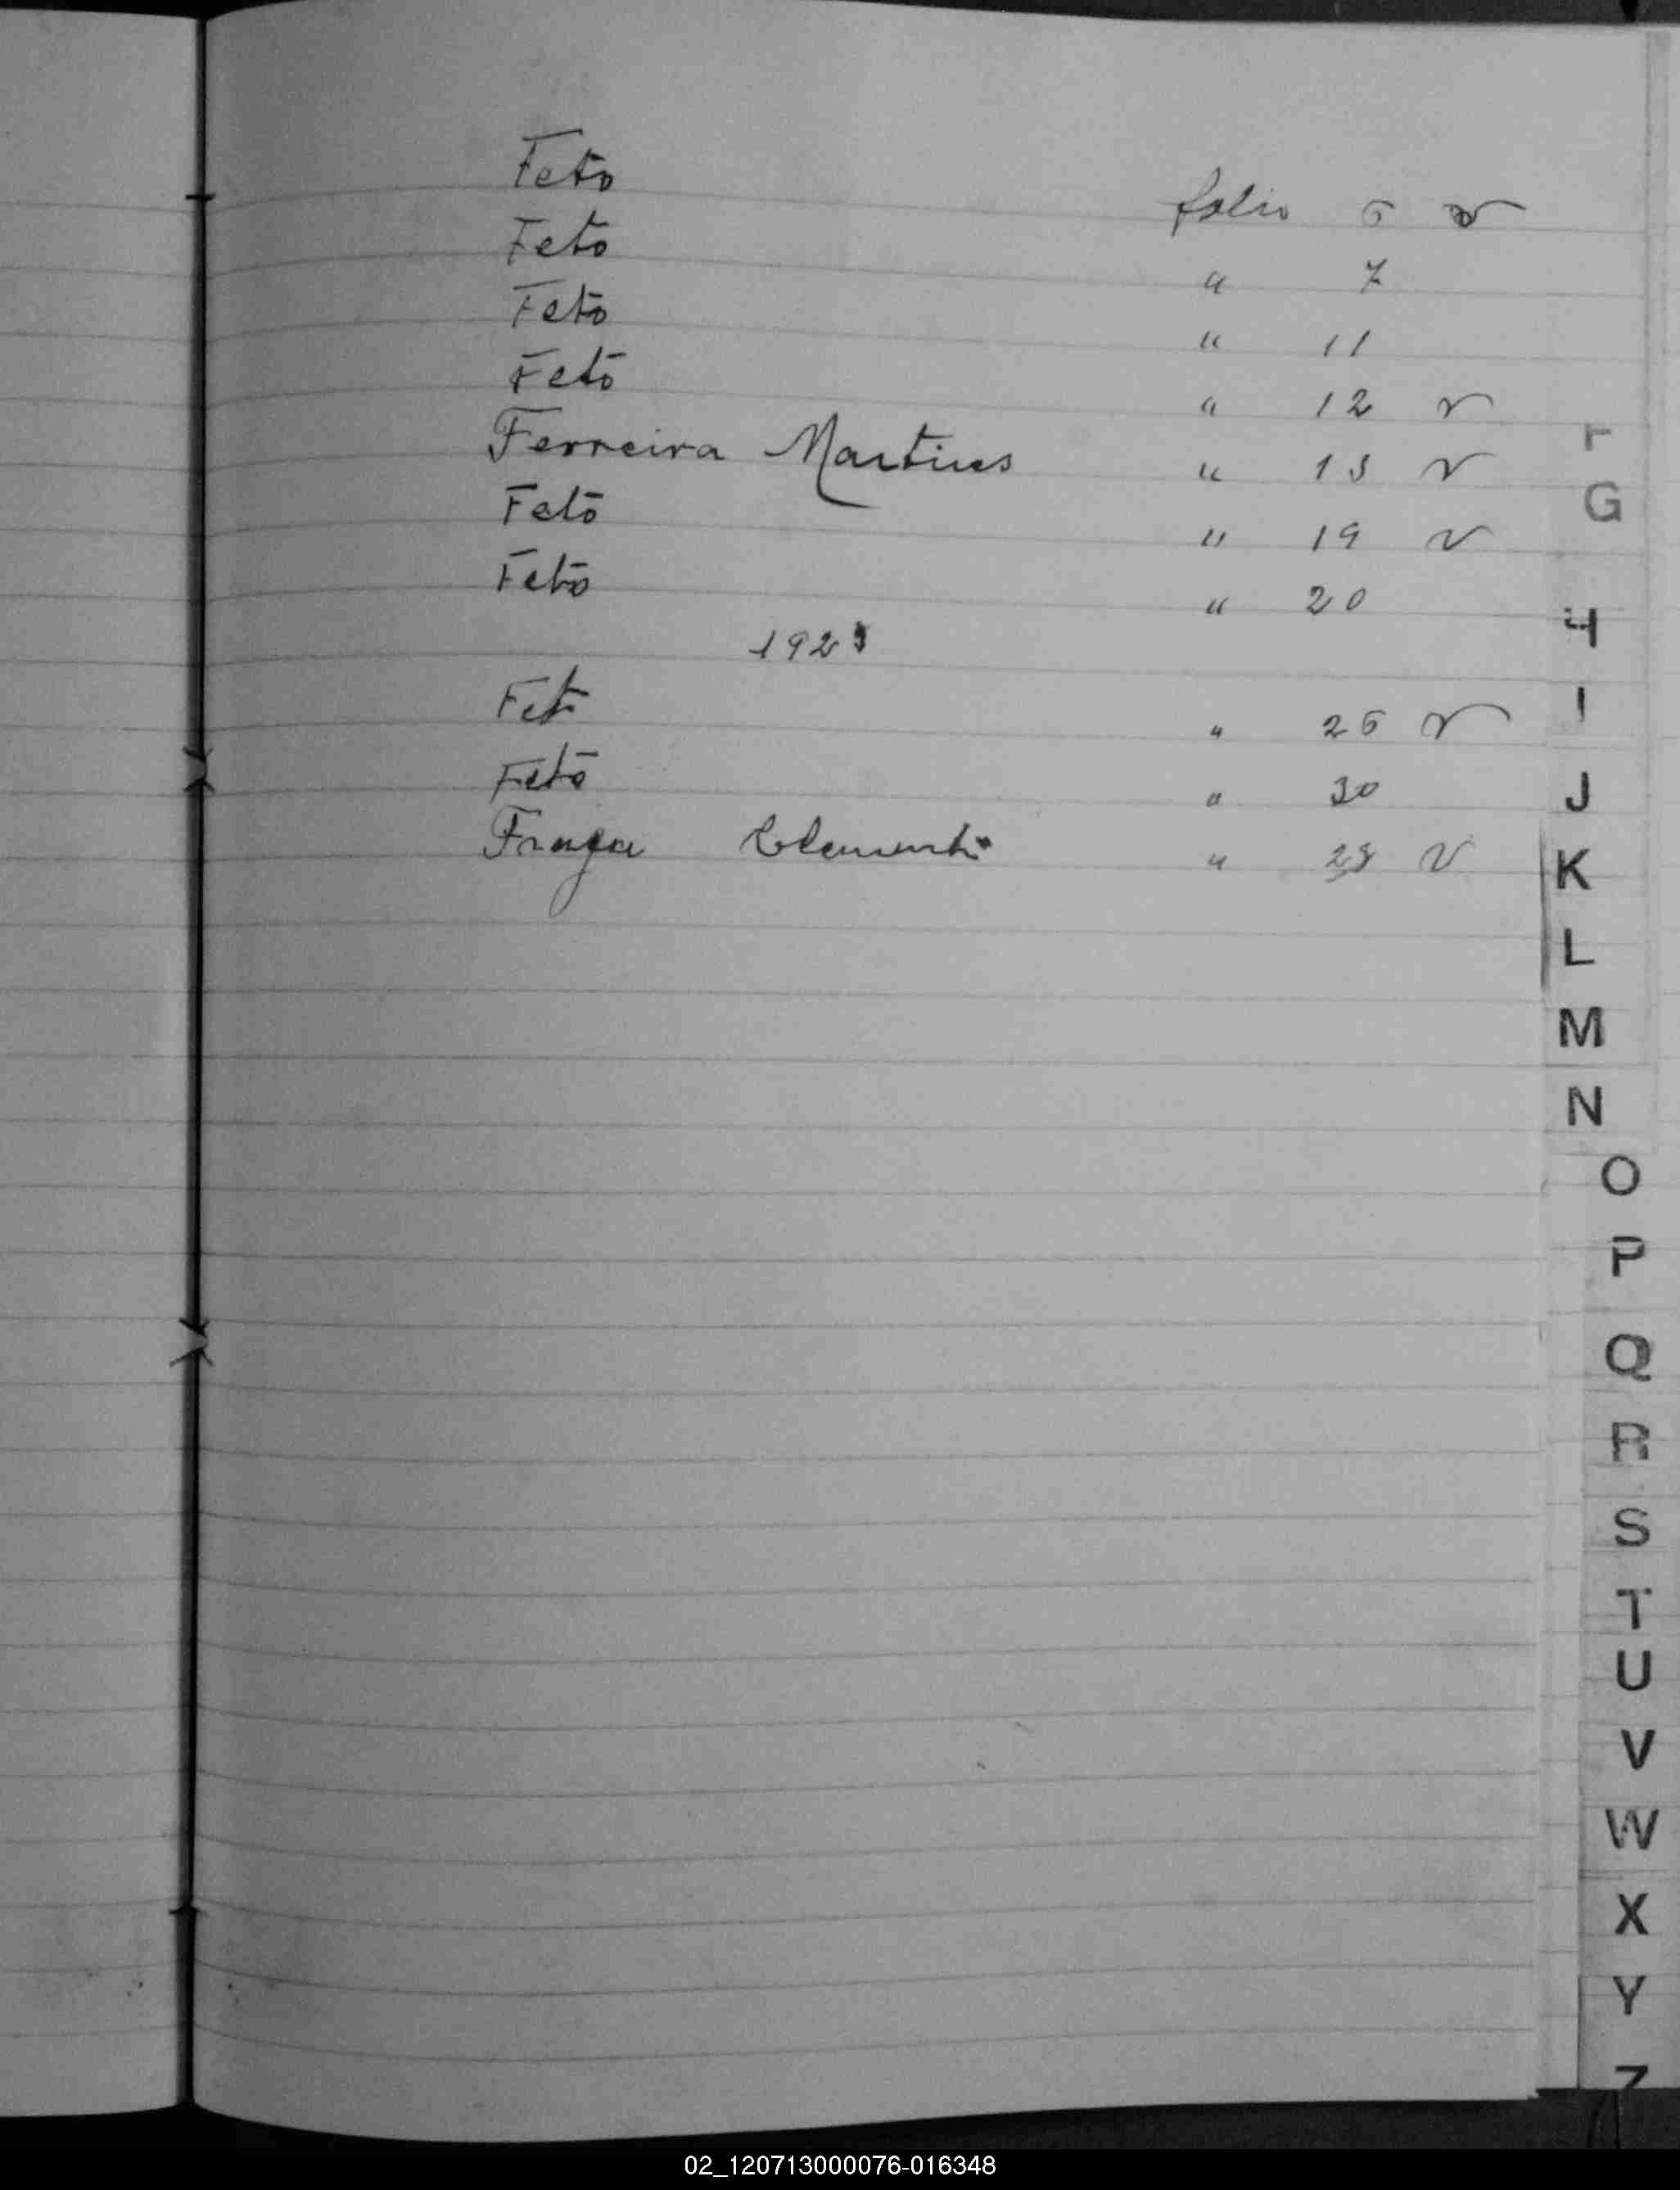 Feto folio 6 v
Feto " 7
Feto " 11
Feto " 12 v
Ferreira Martins " 13 v
Feto " 19 v
Feto " 20
192
Feto " 26 v
Feto " 30
Clementi " 28 v
F
G
H
I
J
K
L
M
N
O
P
Q
R
S
T
U
V
W
X
Y
Z
02_120713000076-016348